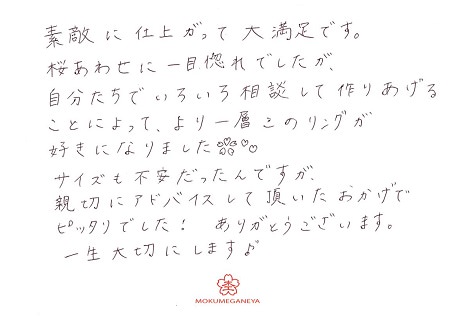 素敵に仕上がって大満足です。
桜あわせに一目惚れでしたが、
自分たちでいろいろ相談して作りあげる
ことによって、より一層このリングが
好きになりました
サイズも不安だったんですが、
親切にアドバイスして頂いたおかげで
ピッタリでした！ ありがとうございます。
一生大切にします♪
MOKUMEGANEYA